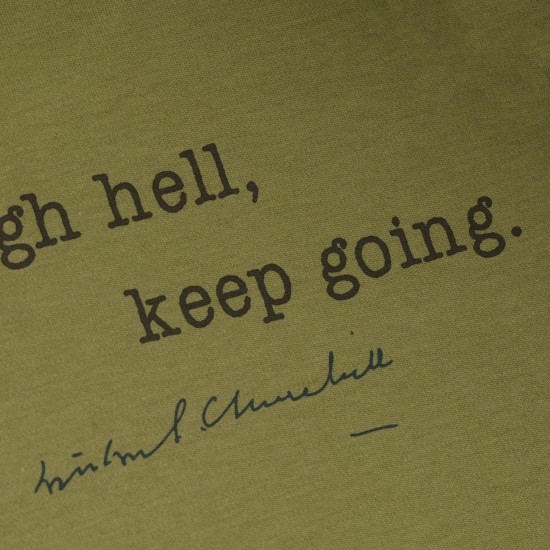 gh hell,
keep going.
Winston S. Churchill